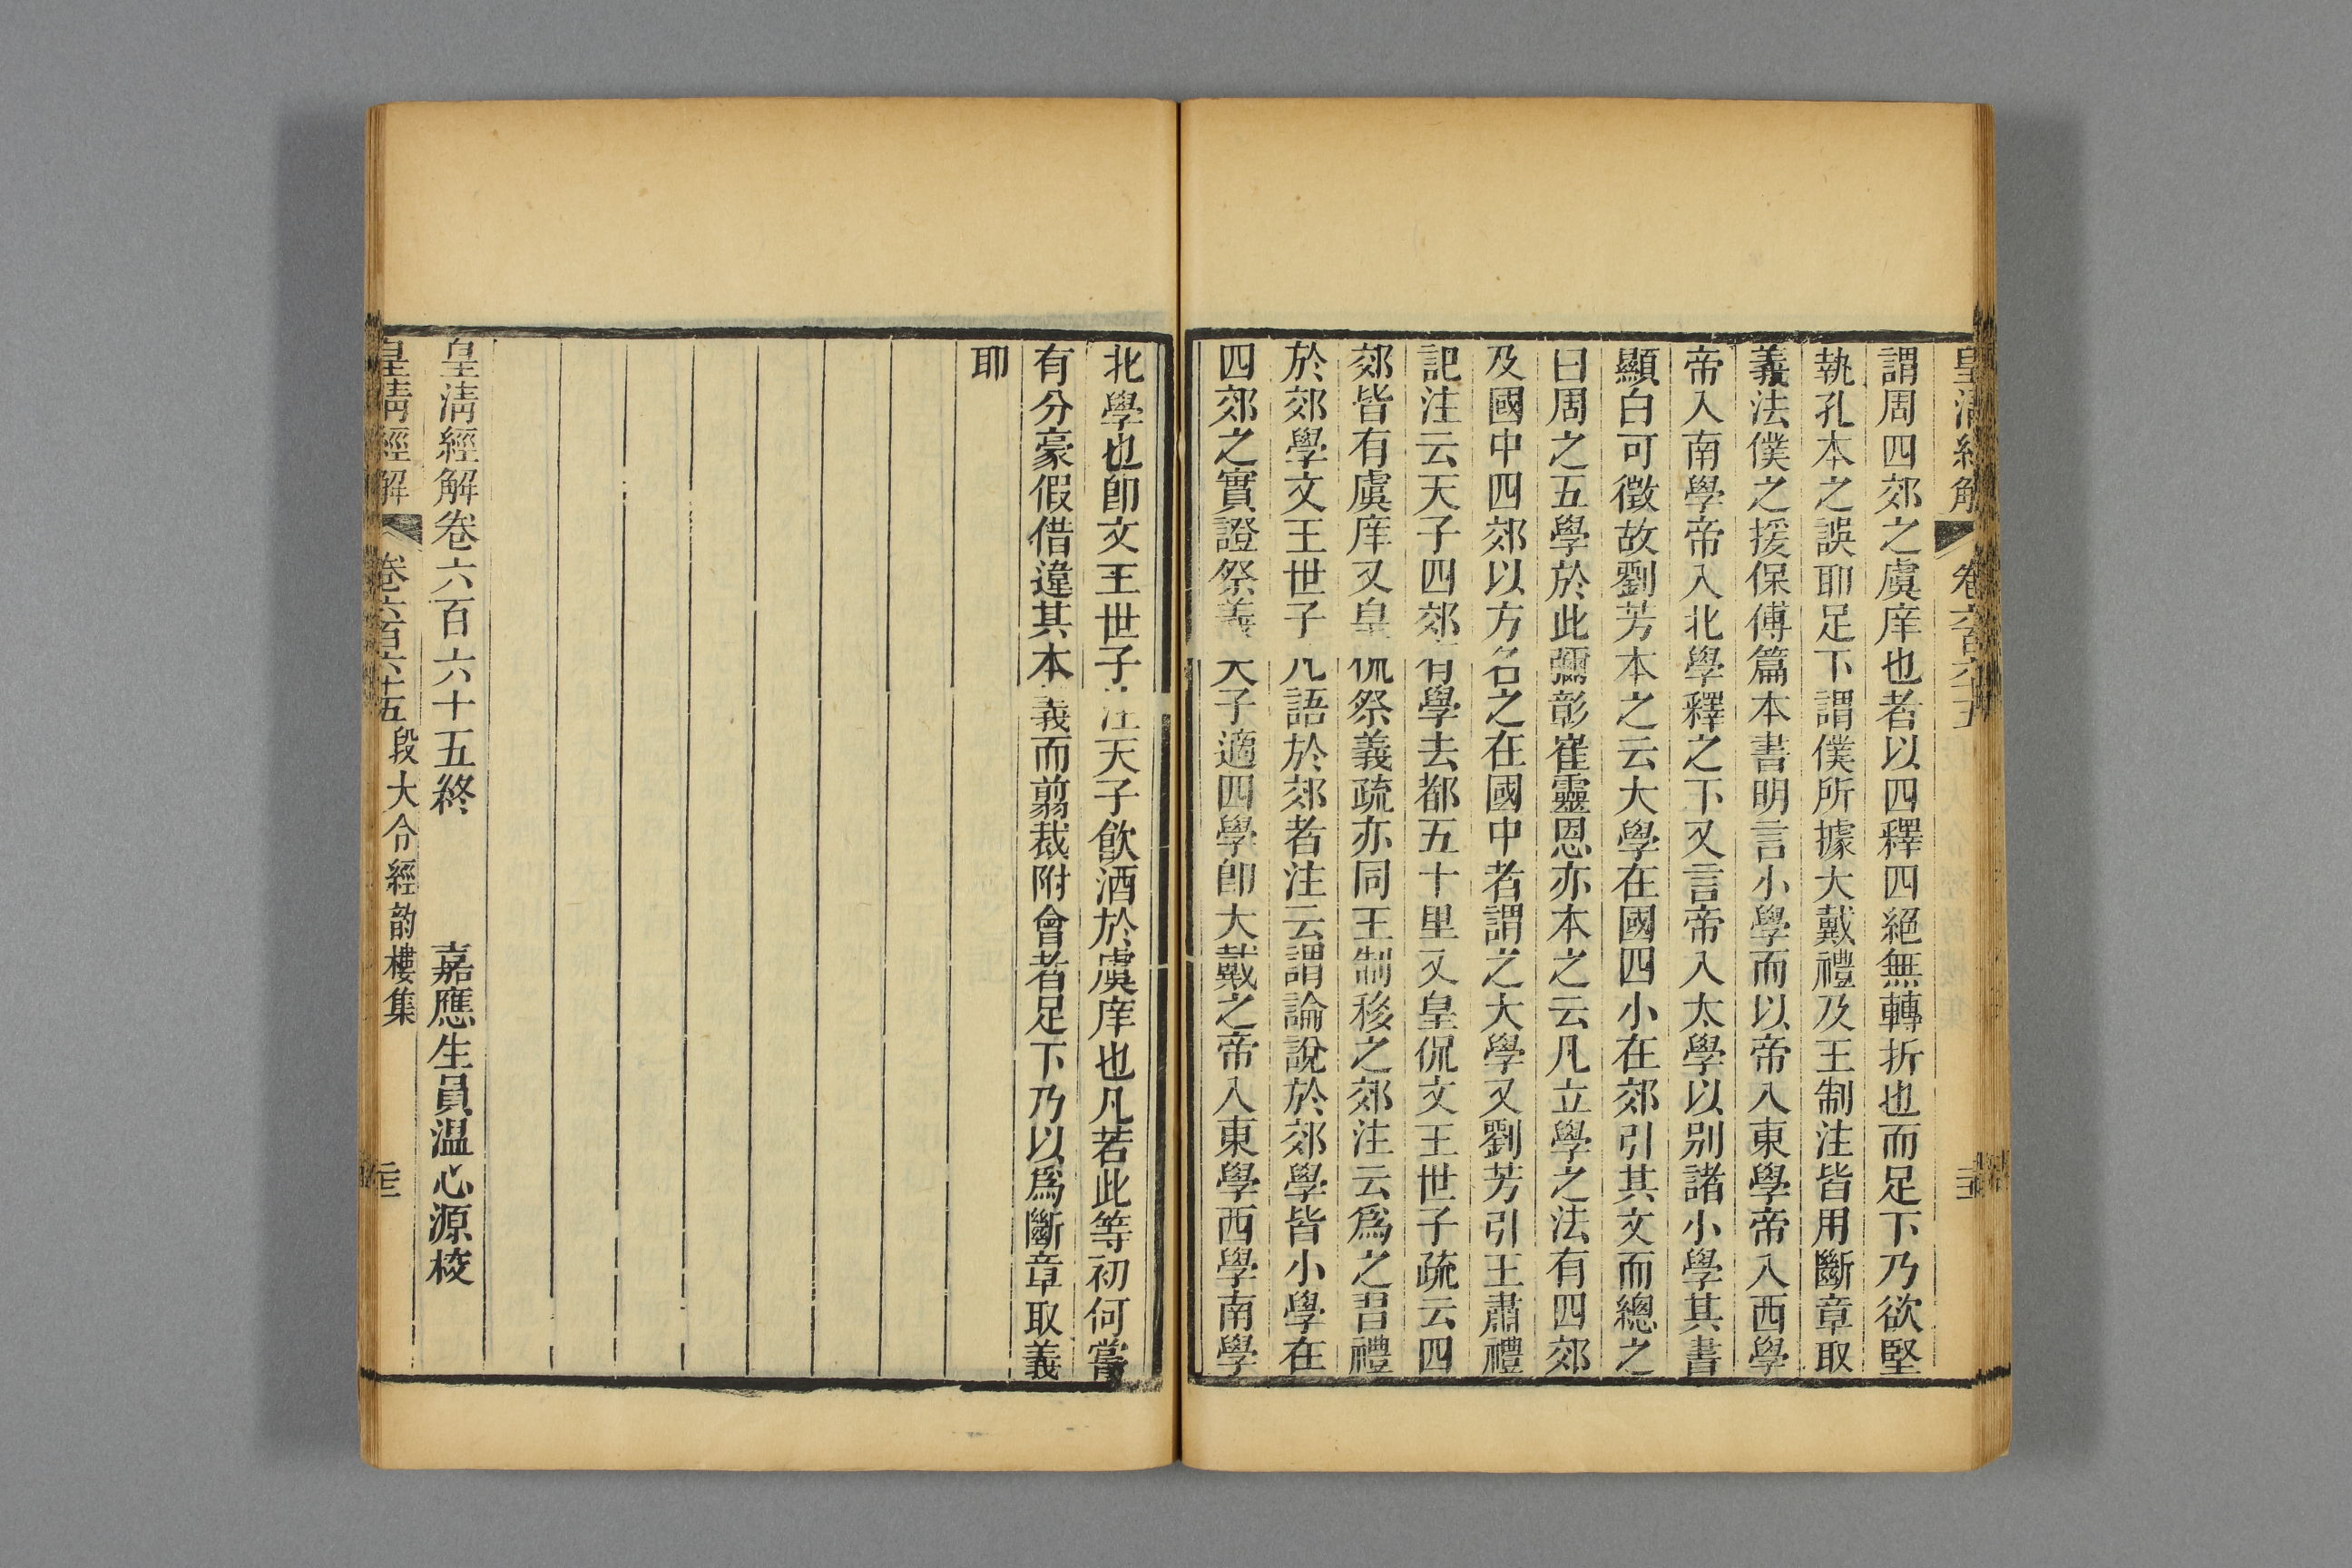 皇清經解 卷六百六十五
謂周四郊之虞庠也者以四釋四絕無轉折也而足下乃欲堅
執孔本之誤耶足下謂僕所據大戴禮及王制注皆用斷章取
義法僕之援保傅篇本書明言小學而以帝入東學帝入西學
帝入南學帝入北學釋之下又言帝入太學以別諸小學其書
顯白可徵故劉芳本之云大學在國四小在郊引其文而總之
曰周之五學於此彌彰崔靈恩亦本之云凡立學之法有四郊
及國中四郊以方名之在國中者謂之大學又劉芳引王肅禮
記注云天子四郊有學去都五十里又皇侃文王世子疏云四
郊皆有虞庠又皇侃祭義疏亦同王制移之郊注云爲之習禮
於郊學文王世子凡語於郊者注云謂論說於郊學皆小學在
四郊之實證祭義天子適四學卽大戴之帝入東學西學南學
北學也卽文王世子注天子飮酒於虞庠也凡若此等初何嘗
有分豪假借違其本義而翦裁附會者足下乃以爲斷章取義
耶
皇清經解卷六百六十五終 嘉應生員温心源校
皇清經解 卷六百六十五 段大令經韵樓集